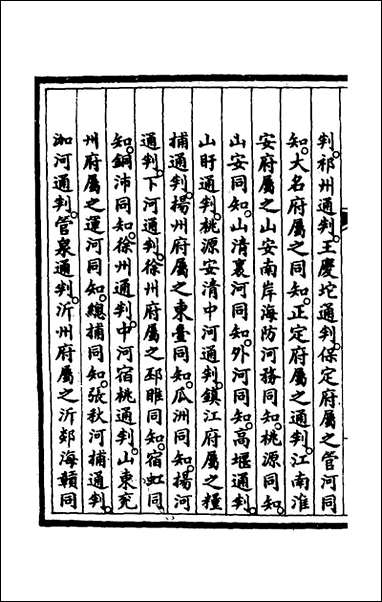 判。祁州通判。王慶坨通判。保定府屬之管河同
知。大名府屬之同知。正定府屬之通判。江南淮
安府屬之山安南岸海防河務同知。桃源同知。
山安同知。山清裏河同知。外河同知。高堰通判。
山盱通判。桃源安清中河通判。鎮江府屬之糧
捕通判。揚州府屬之東臺同知。瓜洲同知。揚河
通判。下河通判。徐州府屬之邳睢同知。宿虹同
知。銅沛同知。徐州通判。中河宿桃通判。山東兖
州府屬之運河同知。總捕同知。張秋河捕通判。
泇河通判。管泉通判。沂州府屬之沂郯海贛同